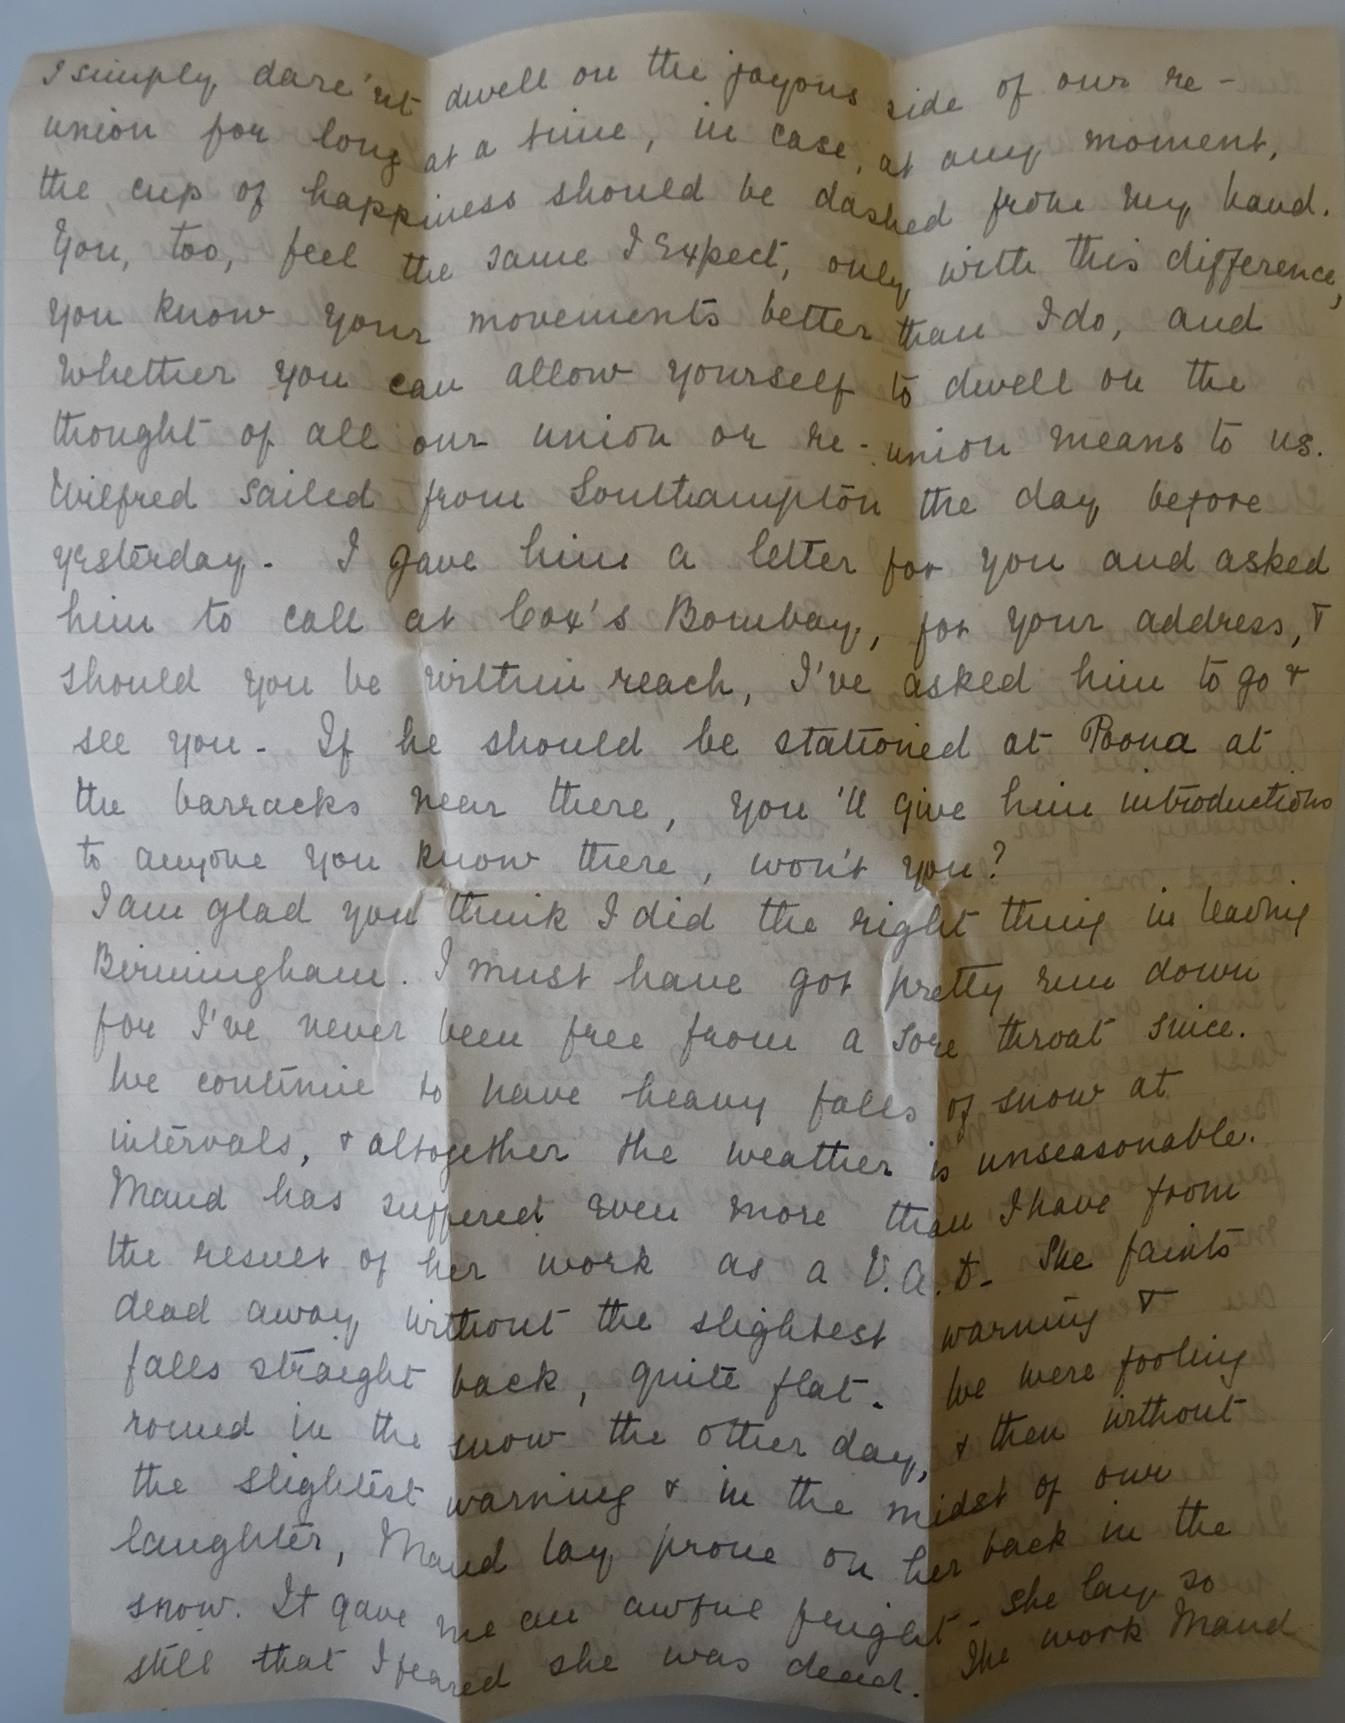 I simply dare'nt dwell on the joyous side of our re-
union for long at a time, in case, at any moment,
the cup of happiness should be dashed from my hand.
You, too, feel the same I expect, only, with this difference,
you know your movements better than I do, and
whether you can allow yourself to dwell on the
thought of all our union or re-union means to us.
Wilfred sailed from Southampton the day before
yesterday. I gave him a letter for you and asked
him to call at Cox's Bombay, for your address, &
should you be within reach, I've asked him to go &
see you. If he should be stationed at Poona at
the barracks near there, you'll give him introductions
to anyone you know there, won't you?
I am glad you think I did the right thing in leaving
Birmingham. I must have got pretty run down
for I've never been free from a sore throat since.
We continue to have heavy falls of snow at
intervals, & altogether the weather is unseasonable.
Maud has suffered even more than I have from
the result of her work as a V.A.D. She faints
dead away without the slightest warning &
falls straight back, quite flat. We were fooling
round in the snow the other day, & then without
the slightest warning & in the midst of our
laughter, Maud lay prone on her back in the
snow. It gave me an awful fright. She lay so
still that I feared she was dead. The work Maud